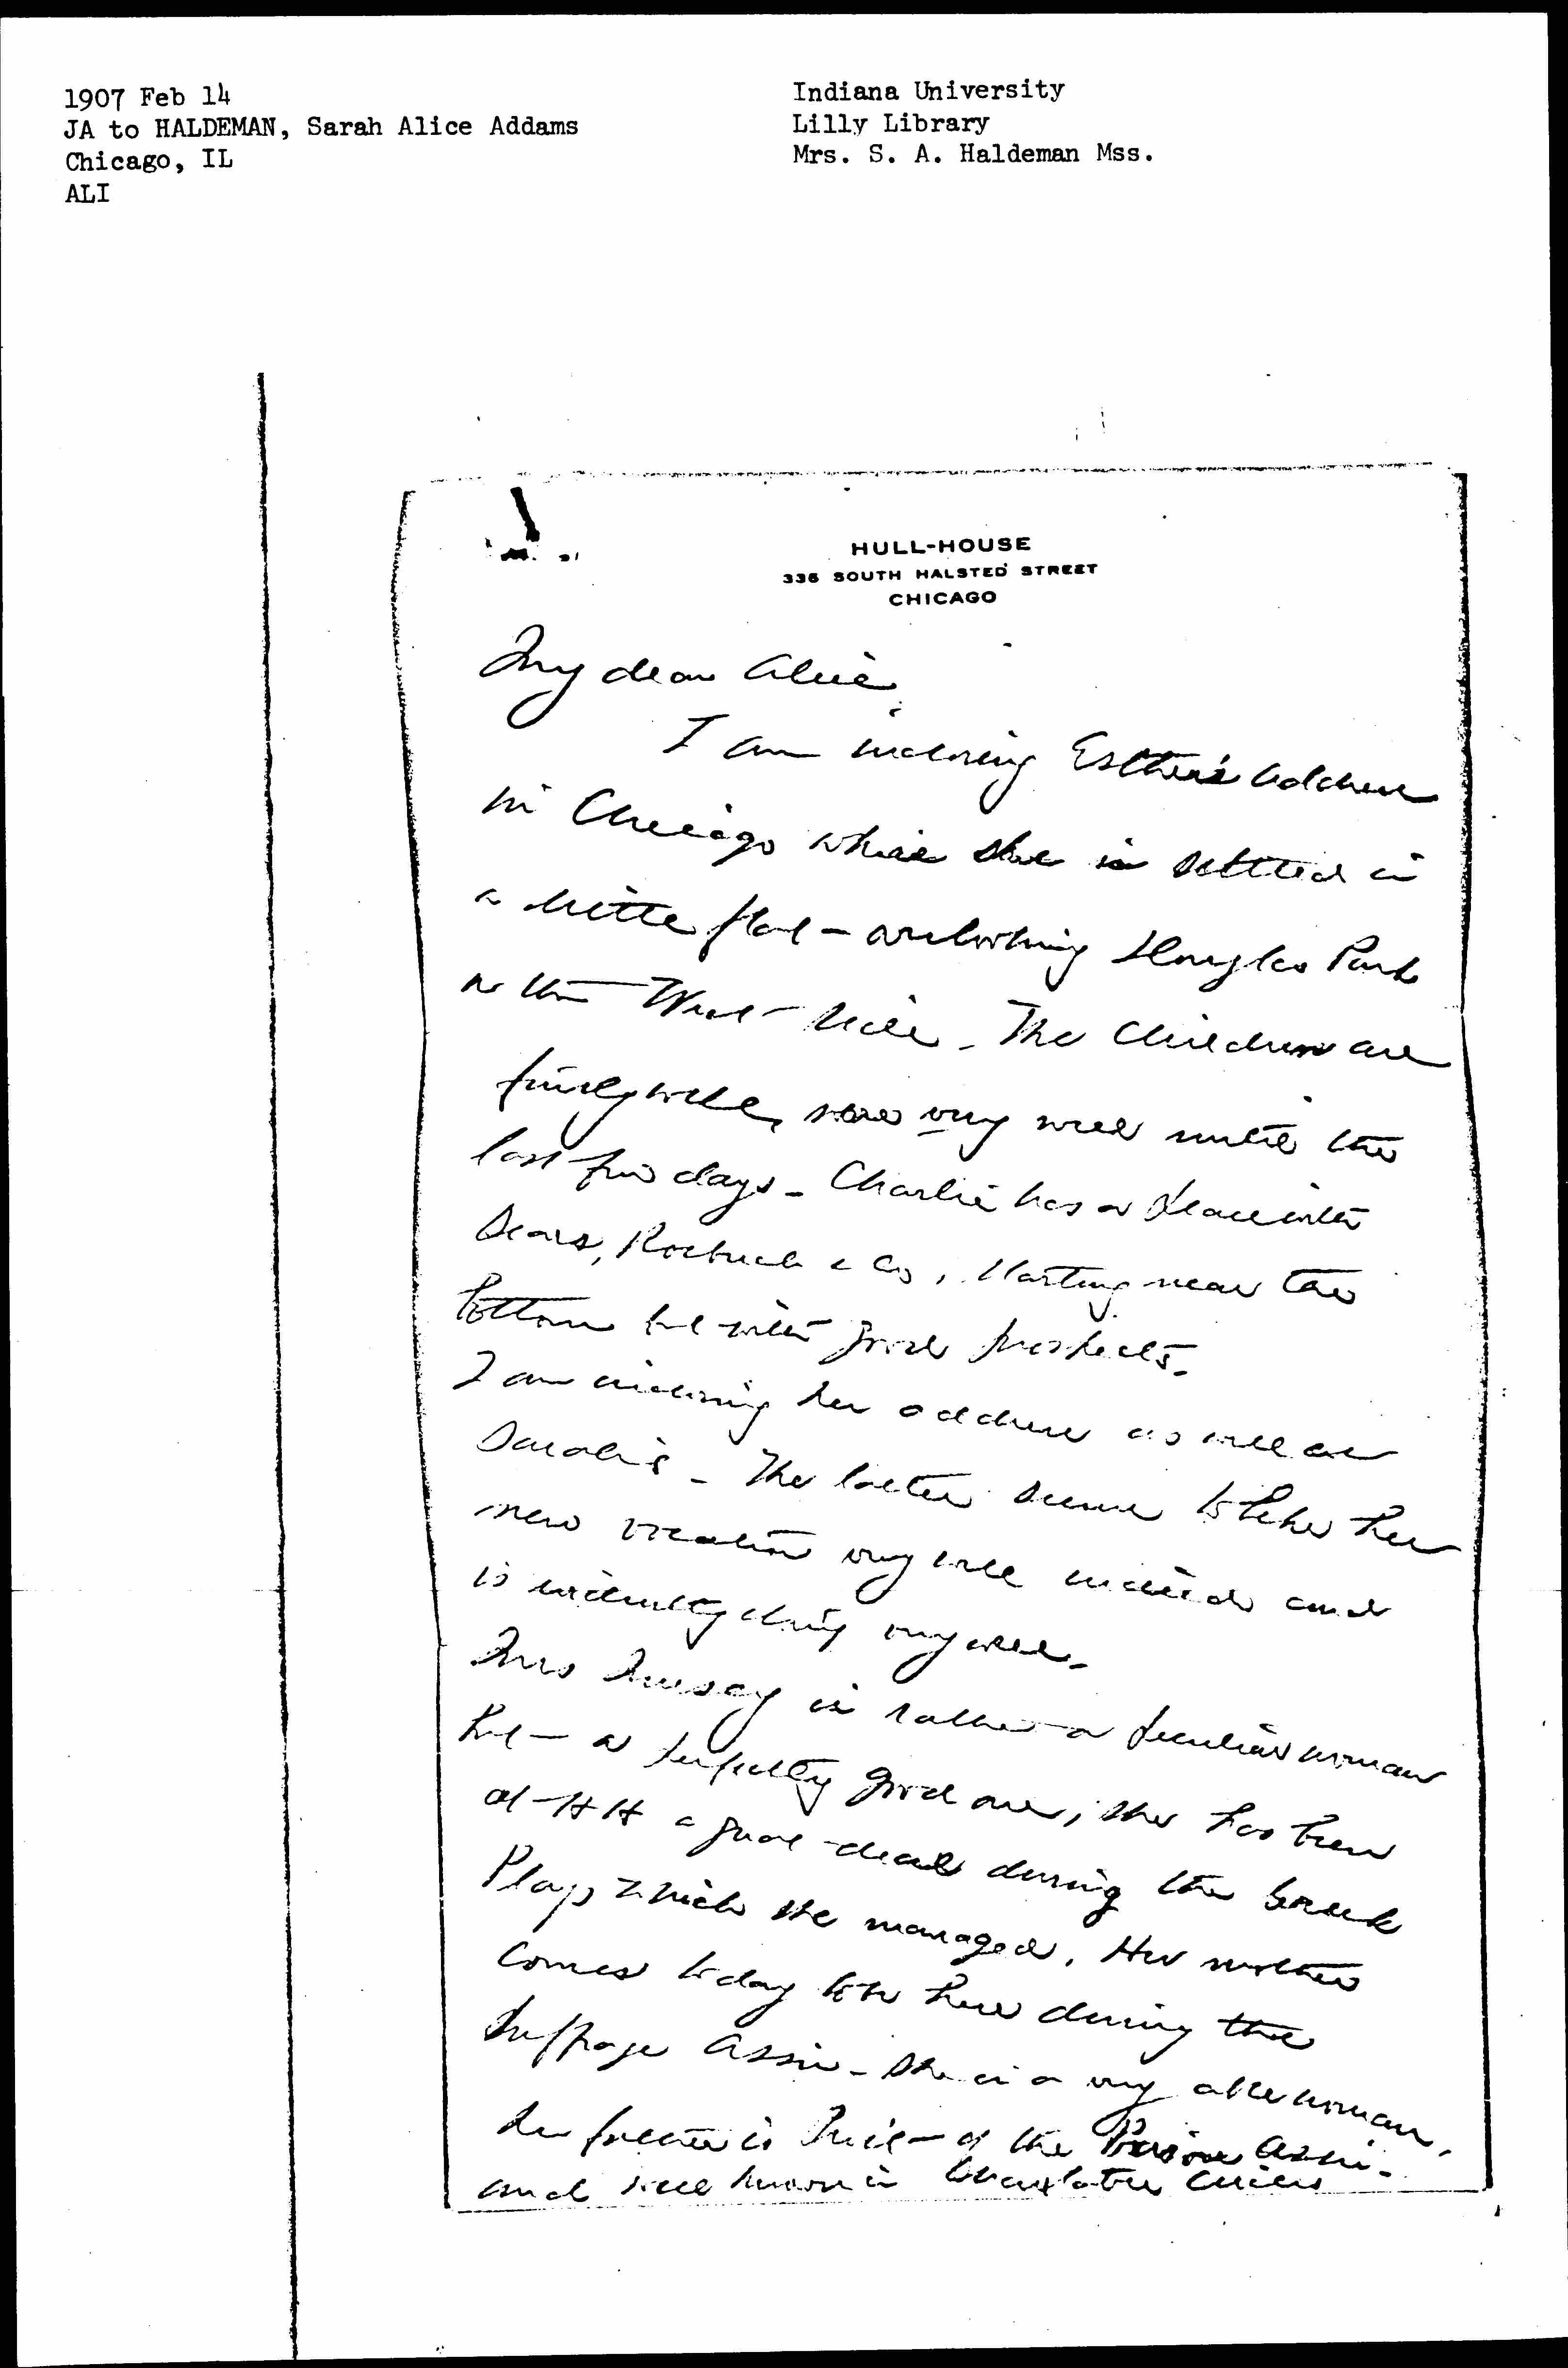 1907 Feb 14
JA to HALDEMAN, Sarah Alice Addams
Chicago, IL
ALI
Indiana University
Lilly Library
Mrs. S. A. Haldeman Mss.
HULL-HOUSE
335 SOUTH HALSTED STREET
CHICAGO
My dear Alice,
I am inclosing Esther's address
in Chicago where she is settled in
a little flat overlooking Douglas Park
on the West Side. The children are
fairly well, were very well until the
last few days. Charlie has a place with
Sears, Roebuck & Co, starting near the
bottom but with good prospects.
I am inclosing her address as well as
Sarah's. The latter seems to like her
new vocation very well indeed and
is evidently doing very well.
Mrs is rather a peculiar woman
but a perfectly good one, she has been
at HH a good deal during the Greek
Plays which she managed. Her mother
comes today to be here during the
Suffrage Assn. She is a very able woman,
her father is Pres't of the Prison Assn.
and well known in charitable circles